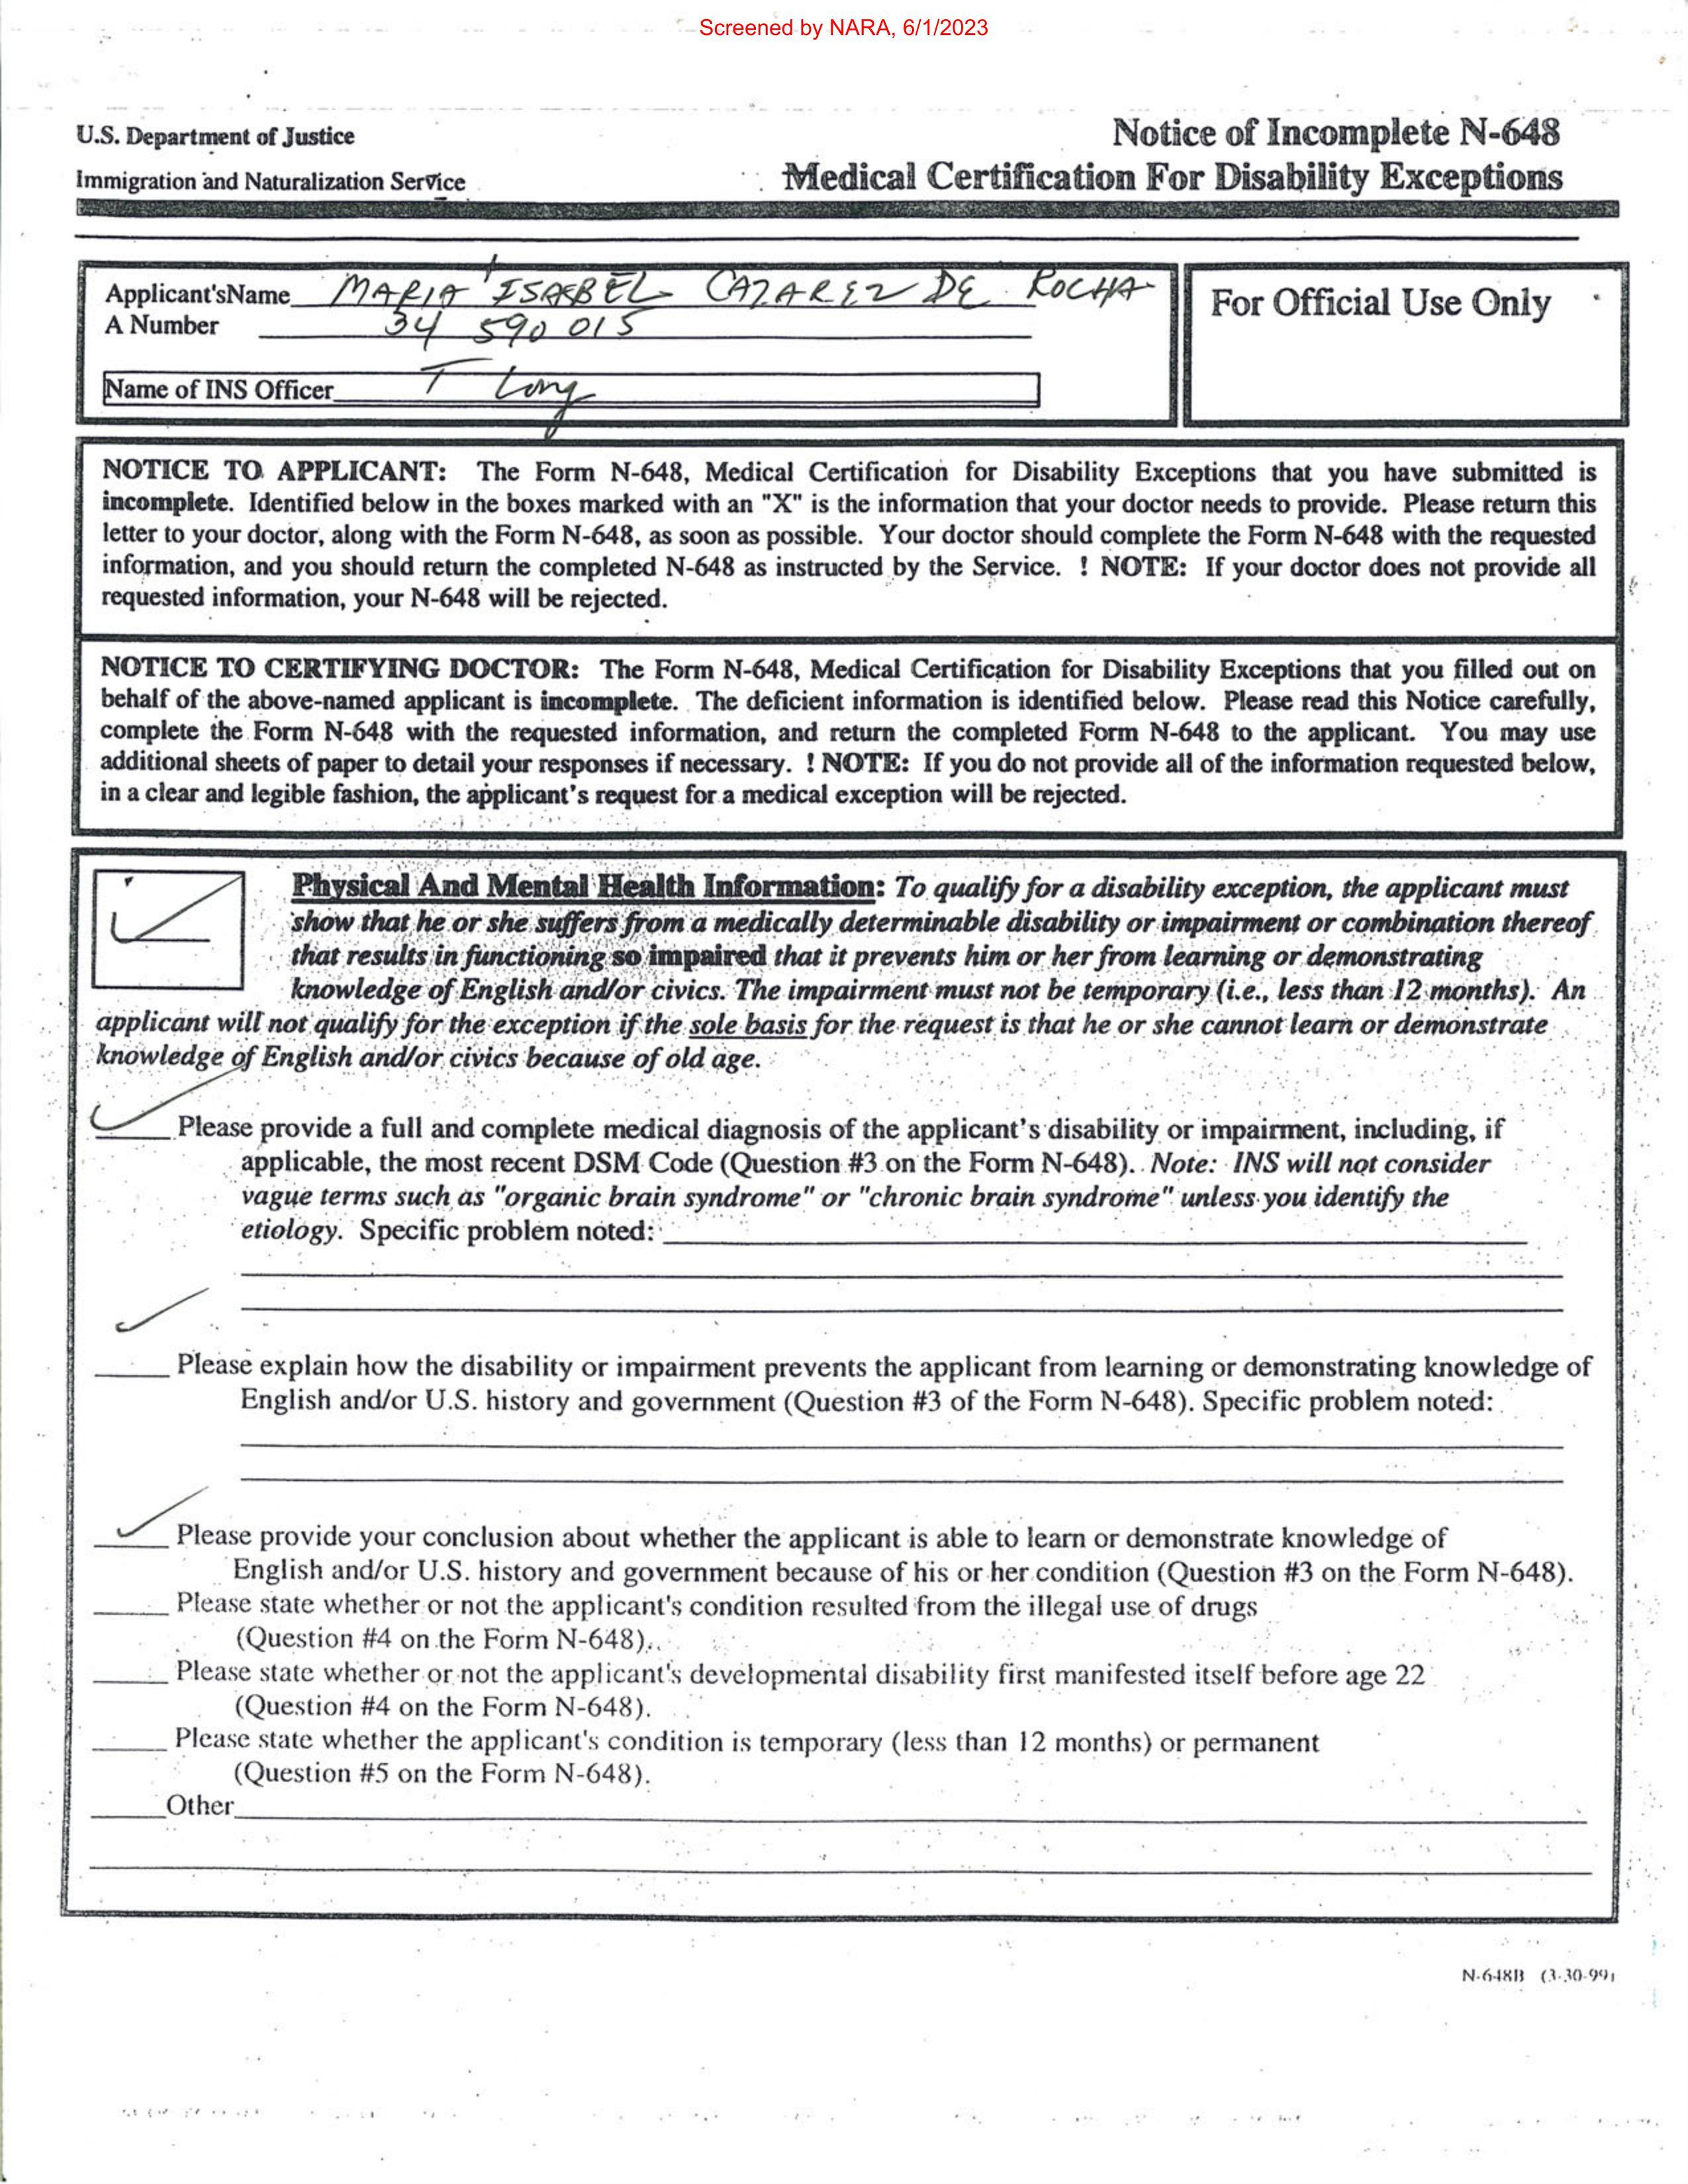 Screened by NARA, 6/1/2023
U.S. Department of Justice
Immigration and Naturalization Service
Notice of Incomplete N-648
Medical Certification For Disability Exceptions
Applicant'sName MARIA ISABEL CAZAREZ DE ROCHA
A Number 34 590 015
Name of INS Officer T Long
For Official Use Only
NOTICE TO APPLICANT: The Form N-648, Medical Certification for Disability Exceptions that you have submitted is
incomplete. Identified below in the boxes marked with an "X" is the information that your doctor needs to provide. Please return this
letter to your doctor, along with the Form N-648, as soon as possible. Your doctor should complete the Form N-648 with the requested
information, and you should return the completed N-648 as instructed by the Service. ! NOTE: If your doctor does not provide all
requested information, your N-648 will be rejected.
NOTICE TO CERTIFYING DOCTOR: The Form N-648, Medical Certification for Disability Exceptions that you filled out on
behalf of the above-named applicant is incomplete. The deficient information is identified below. Please read this Notice carefully,
complete the Form N-648 with the requested information, and return the completed Form N-648 to the applicant. You may use
additional sheets of paper to detail your responses if necessary. ! NOTE: If you do not provide all of the information requested below,
in a clear and legible fashion, the applicant's request for a medical exception will be rejected.
Physical And Mental Health Information: To qualify for a disability exception, the applicant must
show that he or she suffers from a medically determinable disability or impairment or combination thereof
that results in functioning so impaired that it prevents him or her from learning or demonstrating
knowledge of English and/or civics. The impairment must not be temporary (i.e., less than 12 months). An
applicant will not qualify for the exception if the sole basis for the request is that he or she cannot learn or demonstrate
knowledge of English and/or civics because of old age.
Please provide a full and complete medical diagnosis of the applicant's disability or impairment, including, if
applicable, the most recent DSM Code (Question #3 on the Form N-648). Note: INS will not consider
vague terms such as "organic brain syndrome" or "chronic brain syndrome" unless you identify the
etiology. Specific problem noted:
Please explain how the disability or impairment prevents the applicant from learning or demonstrating knowledge of
English and/or U.S. history and government (Question #3 of the Form N-648). Specific problem noted:
Please provide your conclusion about whether the applicant is able to learn or demonstrate knowledge of
English and/or U.S. history and government because of his or her condition (Question #3 on the Form N-648).
Please state whether or not the applicant's condition resulted from the illegal use of drugs
(Question #4 on the Form N-648).
Please state whether or not the applicant's developmental disability first manifested itself before age 22
(Question #4 on the Form N-648).
Please state whether the applicant's condition is temporary (less than 12 months) or permanent
(Question #5 on the Form N-648).
Other
N-648B (3-30-99)